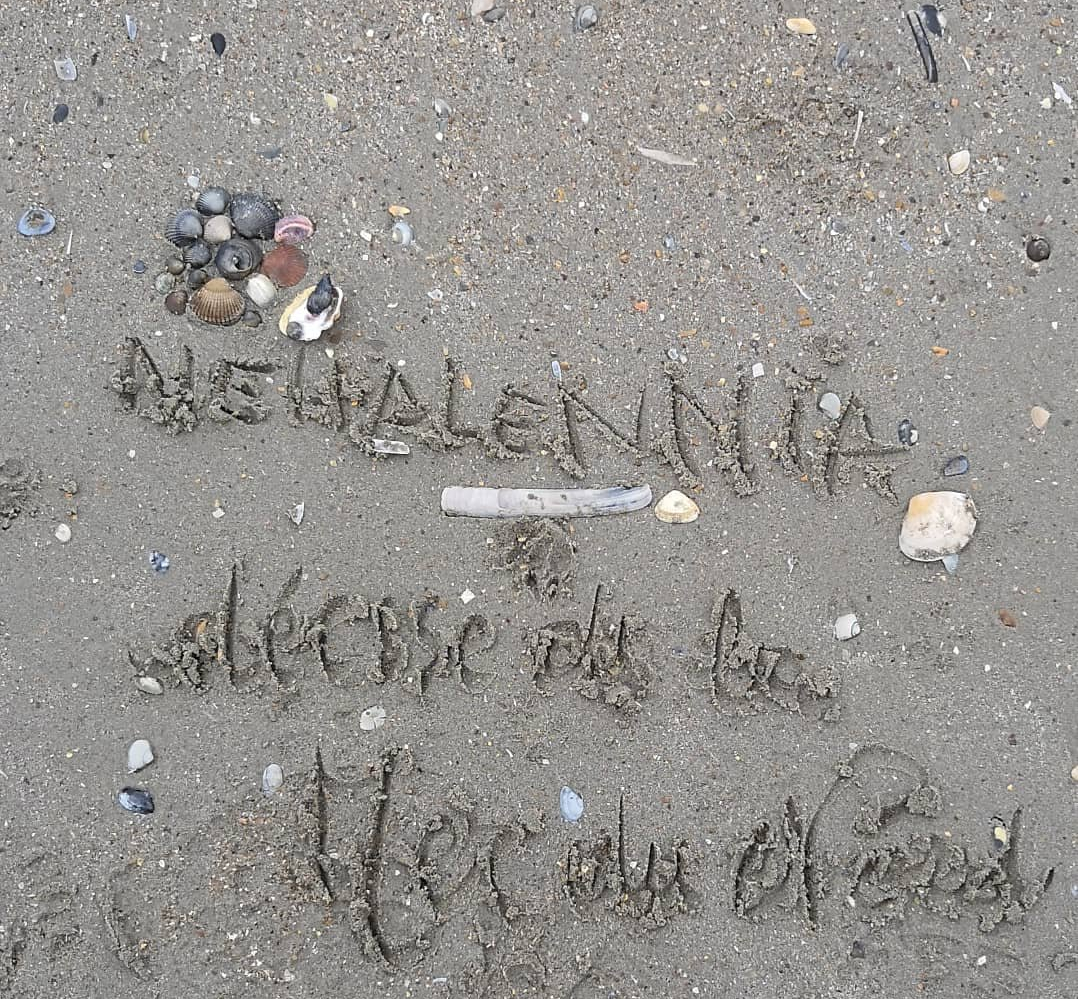 NEHALENNiA
déesse de la
Mer du Nord